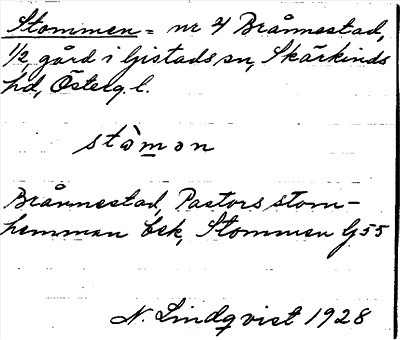 Stommen = nr 4 Brånnestad,
1/2 gård i Gistads sn, Skärkinds
hd, Österg. l.
stòmən
Brånnestad, Pastors stom-
hemman bsk, Stommen G55
N. Lindqvist 1928